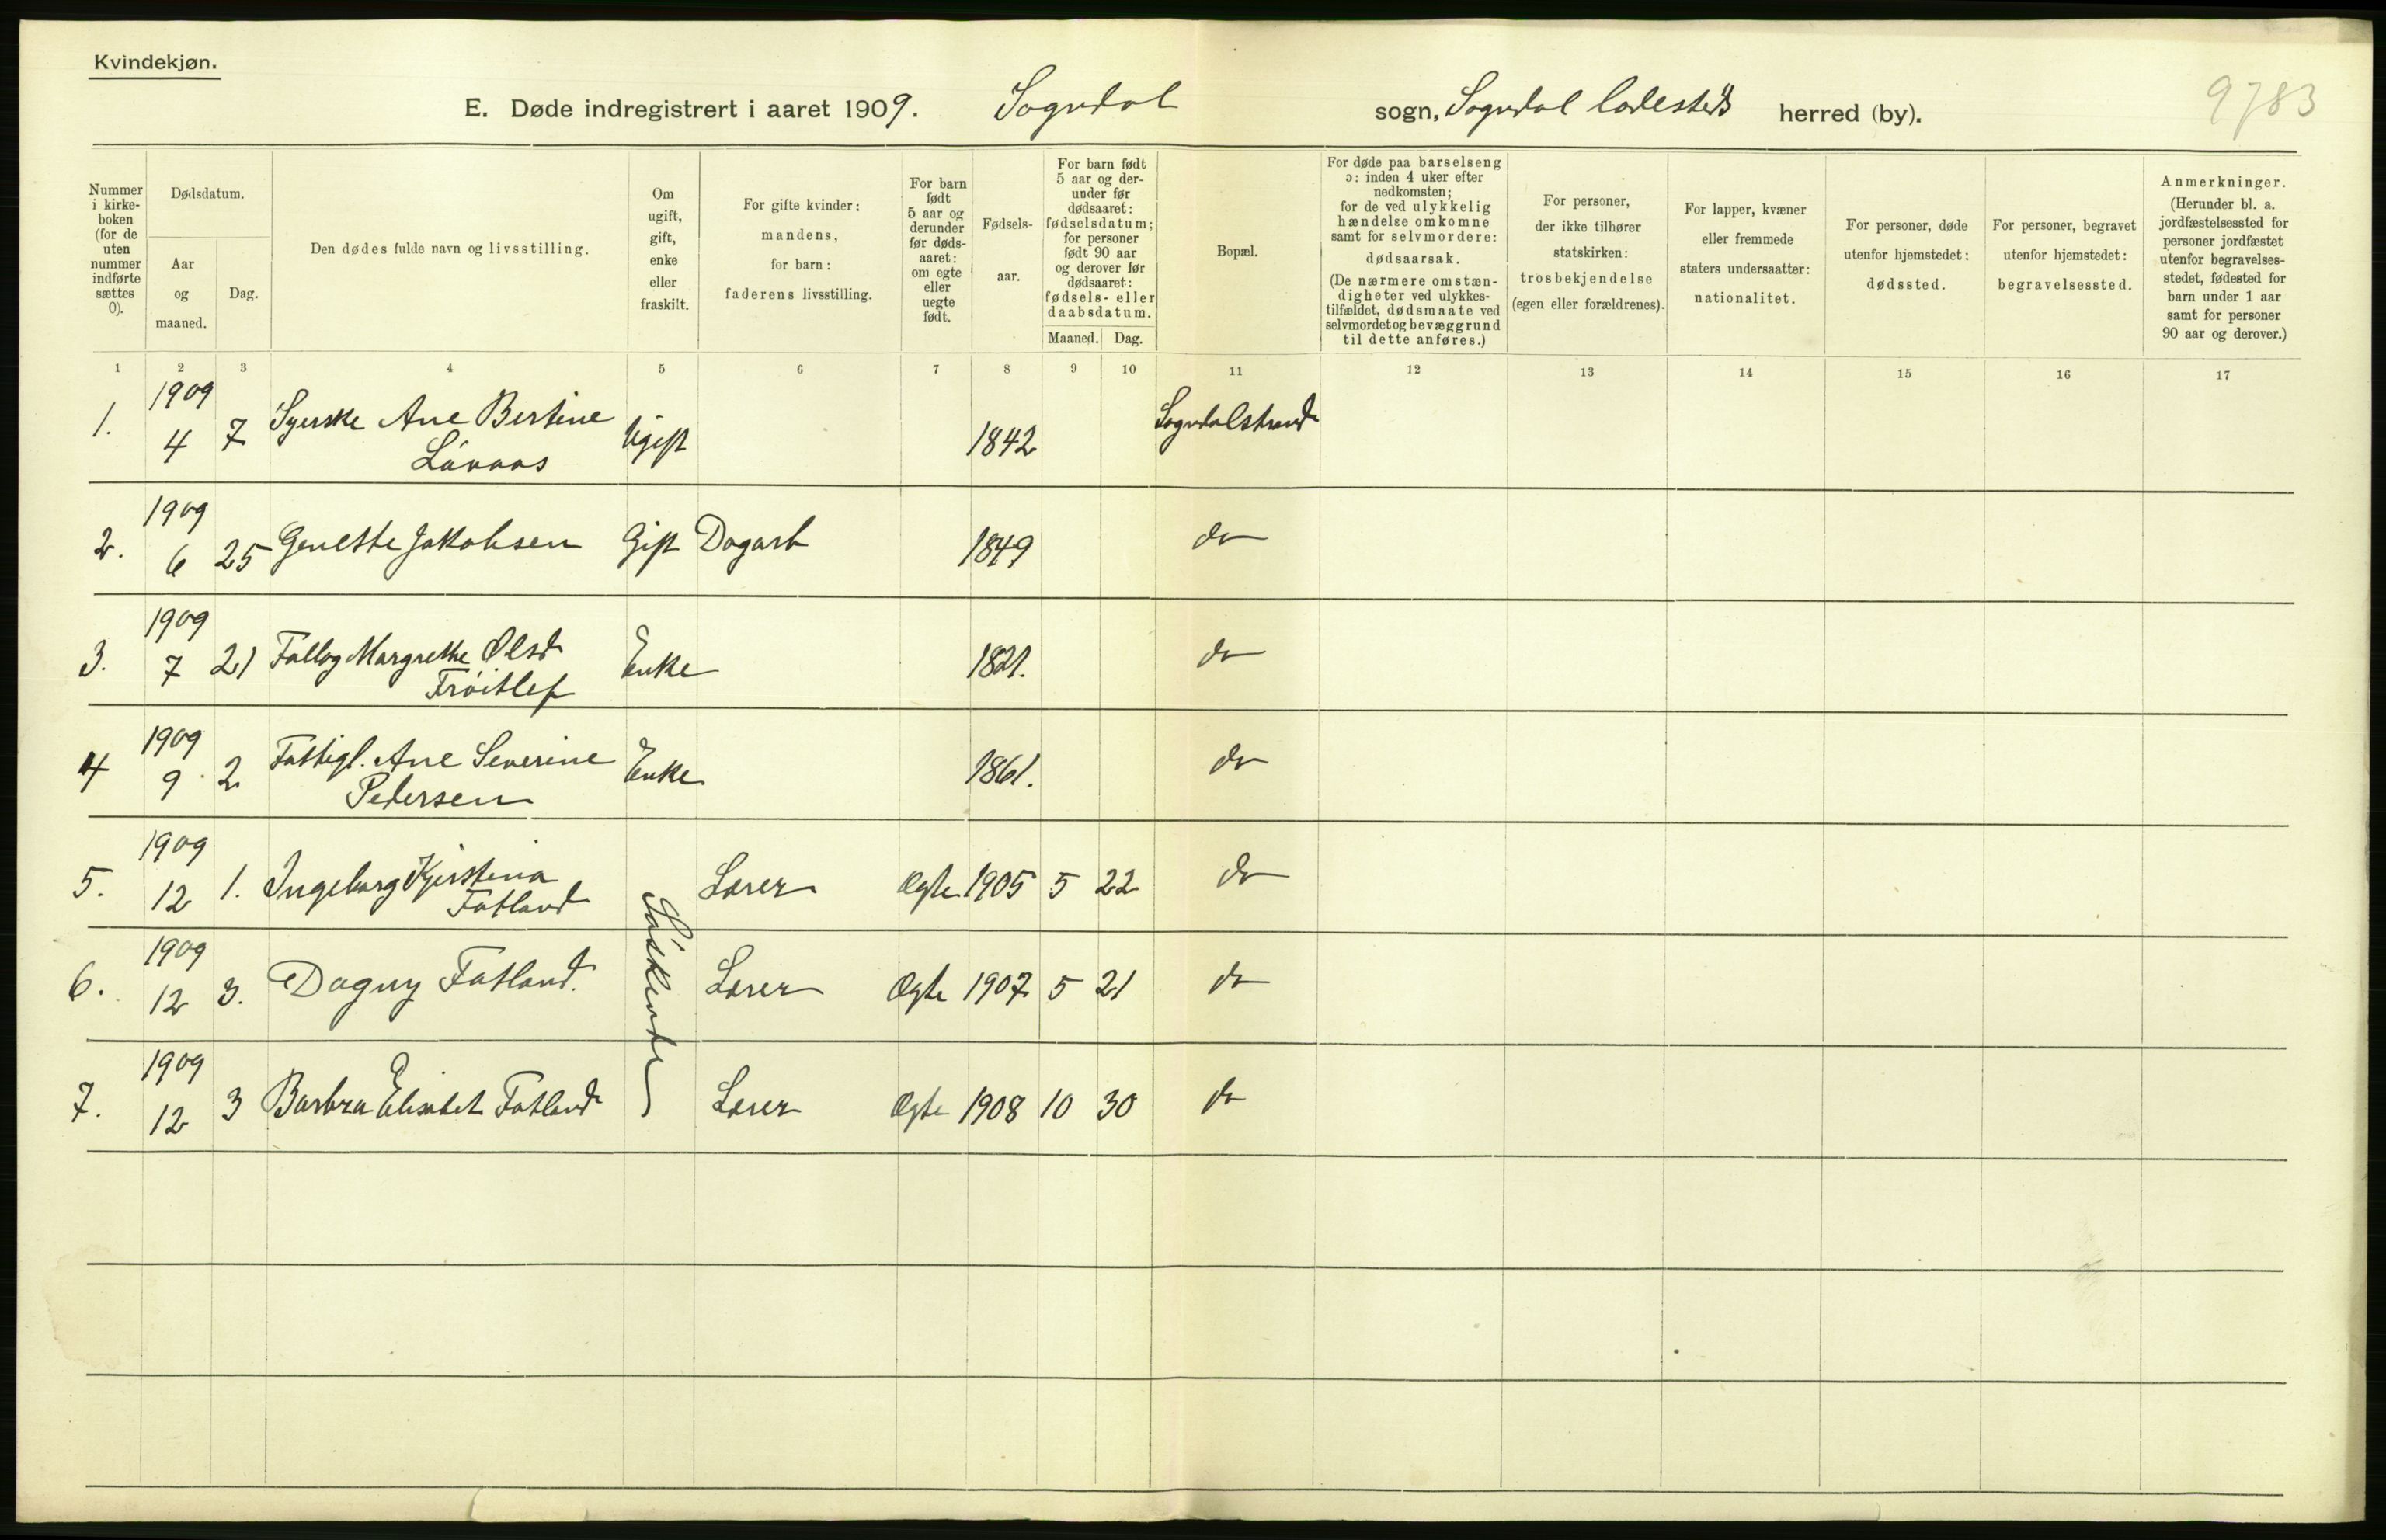 Kvindekjøn.
E. Døde indregistrert i aaret 1909. Sogndal sogn, Sogndal ladesteds herred (by).
9783
Nummer i kirke-boken (for de uten nummer indførte sættes 0).
Dødsdatum.
Aar og maaned.
Dag.
Den dødes fulde navn og livsstilling.
Om ugift, gift, enke eller fraskilt.
For gifte kvinder: mandens, for barn: faderens livsstilling.
For barn født 5 aar og derunder før døds-aaret: om egte eller uegte født.
Fødsels-aar.
For barn født 5 aar og der-under før dødsaaret: fødselsdatum; for personer født 90 aar og derover før dødsaaret: fødsels- eller daabsdatum.
Maaned. Dag.
Bopæl.
For døde paa barselseng ɔ: inden 4 uker efter nedkomsten; for de ved ulykkelig hændelse omkomne samt for selvmordere: dødsaarsak. (De nærmere omstæn-digheter ved ulykkes-tilfældet, dødsmaate ved selvmordet og bevæggrund til dette anføres.)
For personer, der ikke tilhører statskirken: trosbekjendelse (egen eller forældrenes).
For lapper, kvæner eller fremmede staters undersaatter: nationalitet.
For personer, døde utenfor hjemstedet: dødssted.
For personer, begravet utenfor hjemstedet: begravelsessted.
Anmerkninger. (Herunder bl. a. jordfæstelsessted for personer jordfæstet utenfor begravelses-stedet, fødested for barn under 1 aar samt for personer 90 aar og derover.)
1 2 3 4 5 6 7 8 9 10 11 12 13 14 15 16 17
1. 1909 4 7 Syerske Ane Bertine Ugift 1842 Sogndalstrand
2. 1909 6 25 Genette Jakobsen Gift Dagarb 1849 do
3. 1909 7 21 Margrethe Olsd Enke 1821. do
4 1909 9 2 Fattigl. Ane Severine Pedersen Enke 1861. do
5. 1909 12 1. Ingeborg Kjerstina Fatland Lærer Ægte 1905 5 22 do
6. 1909 12 3. Dagny Fatland. Lærer Ægte 1907 5 21 do
7. 1909 12 3 Barbra Elisabet Fatland Lærer Ægte 1908 10 30 do
Søskende